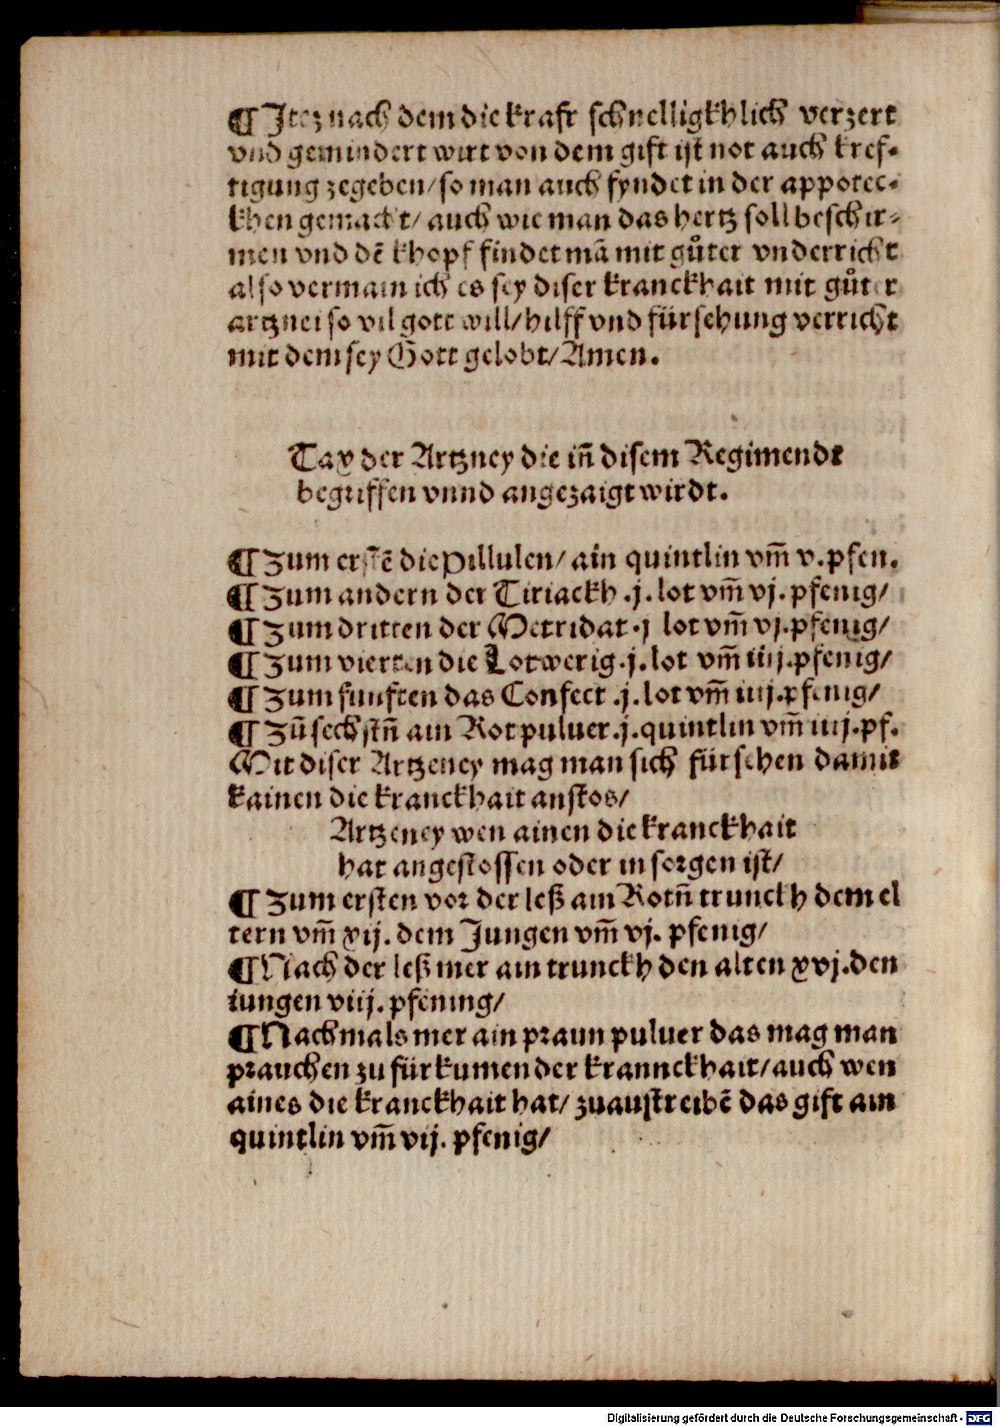 ¶ Itez nach dem die kraft schnelligkhlich verzert
vnd gemindert wirt von dem gift ist not auch kref-
tigung zegeben/ so man auch fyndet in der appotec-
khen gemacht/ auch wie man das hertz soll beschir-
men vnd dē khopf findet mā mit gůter vnderricht
also vermain ich es sey diser kranckhait mit gůter
artznei so vil gott will/ hilff vnd fürsehung verricht
mit dem sey Gott gelobt/ Amen.
Tax der Artzney die in̄ disem Regimendt
begriffen vnnd angezaigt wirdt.
¶ Zum erstē die Pillulen/ ain quintlin vm̄ v. pfen.
¶ Zum andern der Tiriackh .j. lot vm̄ vj. pfenig/
¶ Zum dritten der Metridat .j lot vm̄ vj. pfenig/
¶ Zum vierten die Lotwerig .j. lot vm̄ iiij. pfenig/
¶ Zum funften das Confect .j. lot vm̄ iiij. pfenig/
¶ Zū sechstn̄ ain Rot puluer .j. quintlin vm̄ iiij. pf.
Mit diser Artzeney mag man sich fürsehen damit
kainen die kranckhait anstos/
Artzeney wen ainen die kranckhait
hat angestossen oder in sorgen ist/
¶ Zum ersten vor der leß ain Rotn̄ trunckh dem el
tern vm̄ xij. dem Jungen vm̄ vj. pfenig/
¶ Nach der leß mer ain trunckh den alten xvj. den
iungen viij. pfening/
¶ Nachmals mer ain praun puluer das mag man
prauchen zu fürkumen der krannckhait/ auch wen
aines die kranckhait hat/ zuaustreibē das gift ain
quintlin vm̄ vij. pfenig/
Digitalisierung gefördert durch die Deutsche Forschungsgemeinschaft - DFG